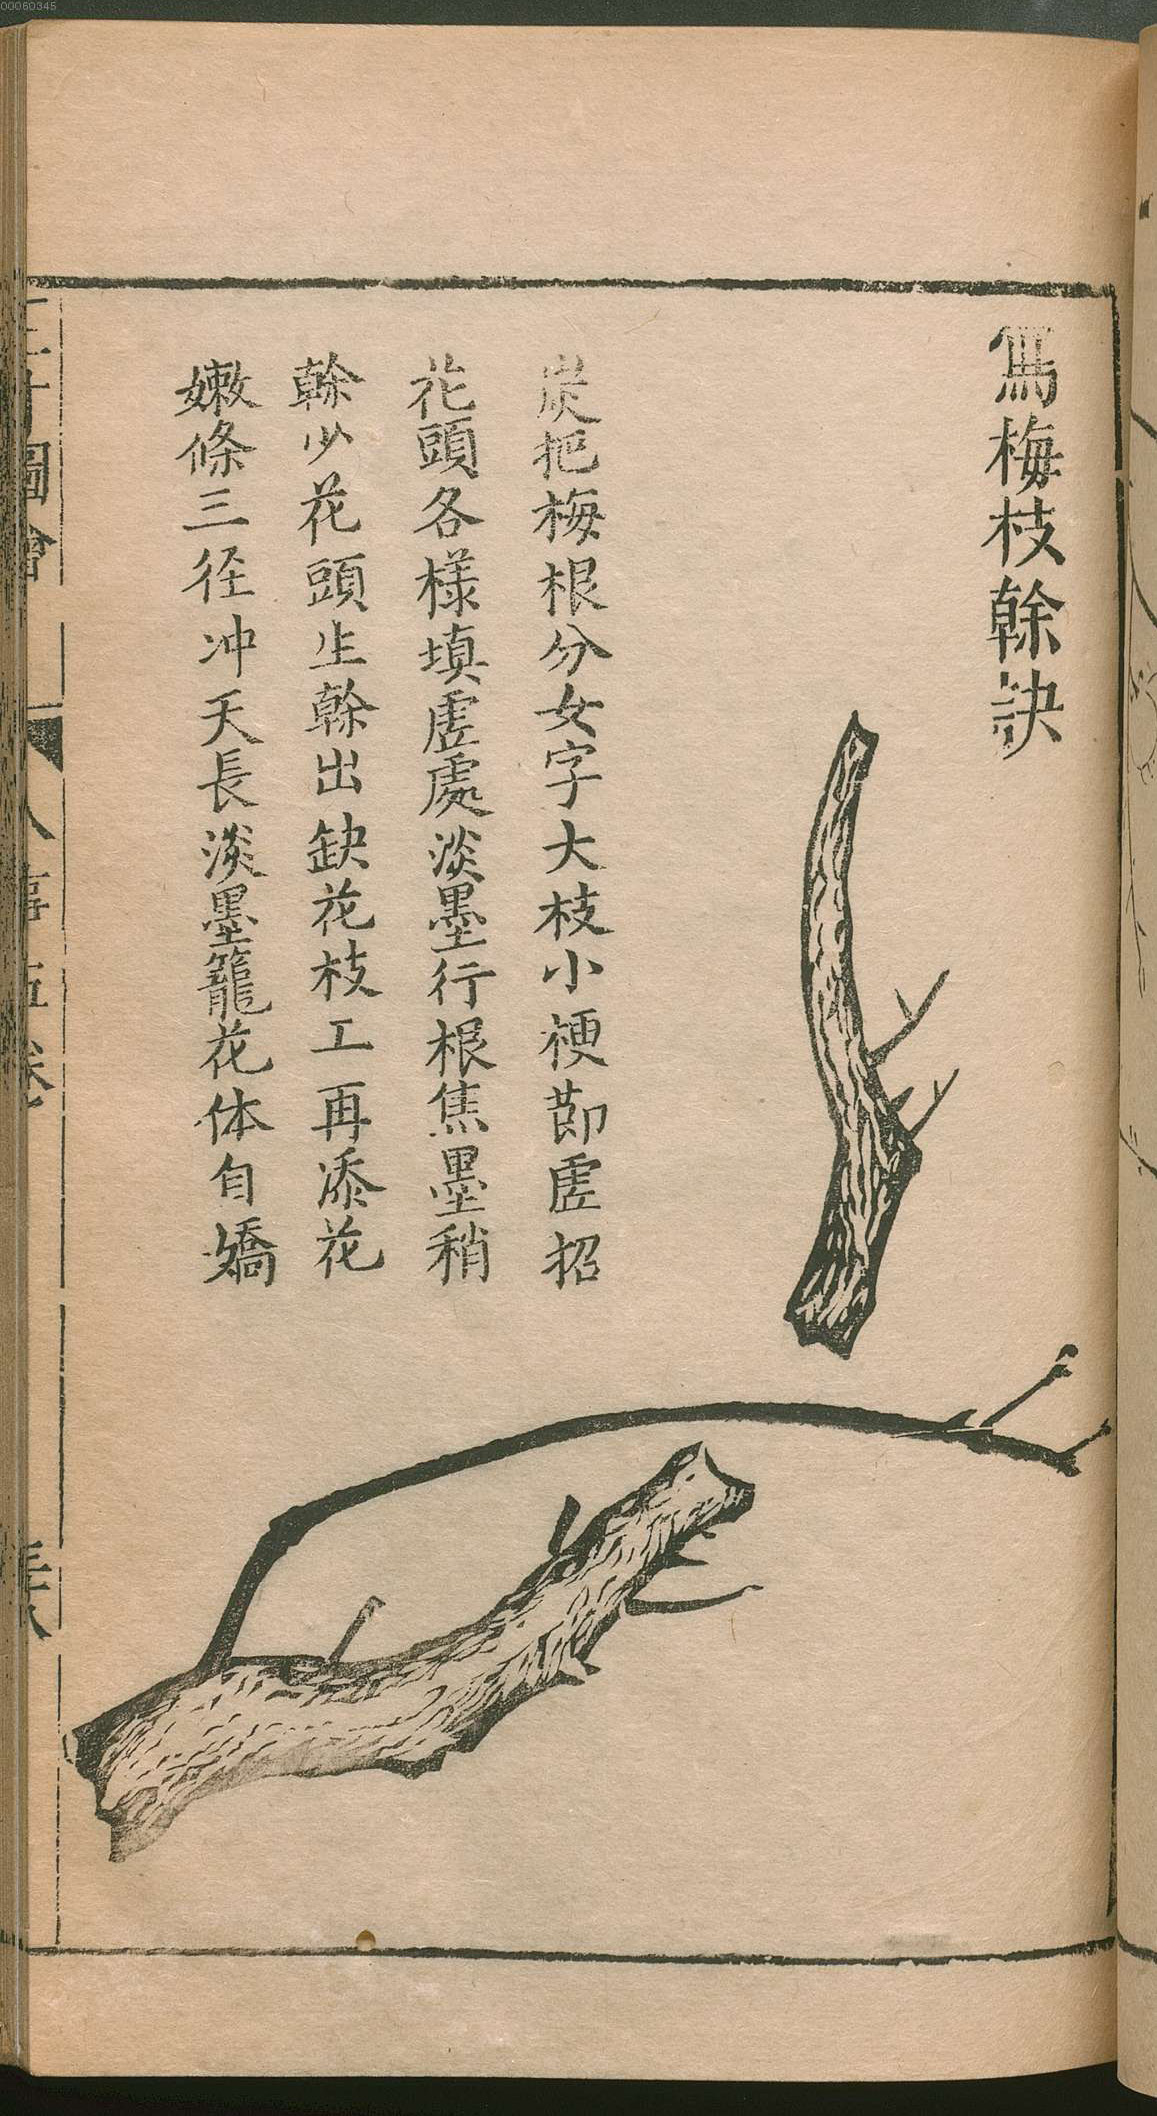 寫梅枝榦訣
炭把梅根分女字大枝小梗莭虗招
花頭各樣填虗處淡墨行根焦墨稍
榦少花頭生榦出缺花枝工再添花
嫩條三径冲天長淡墨籠花体自嬌
圖會 人事五卷
00060345